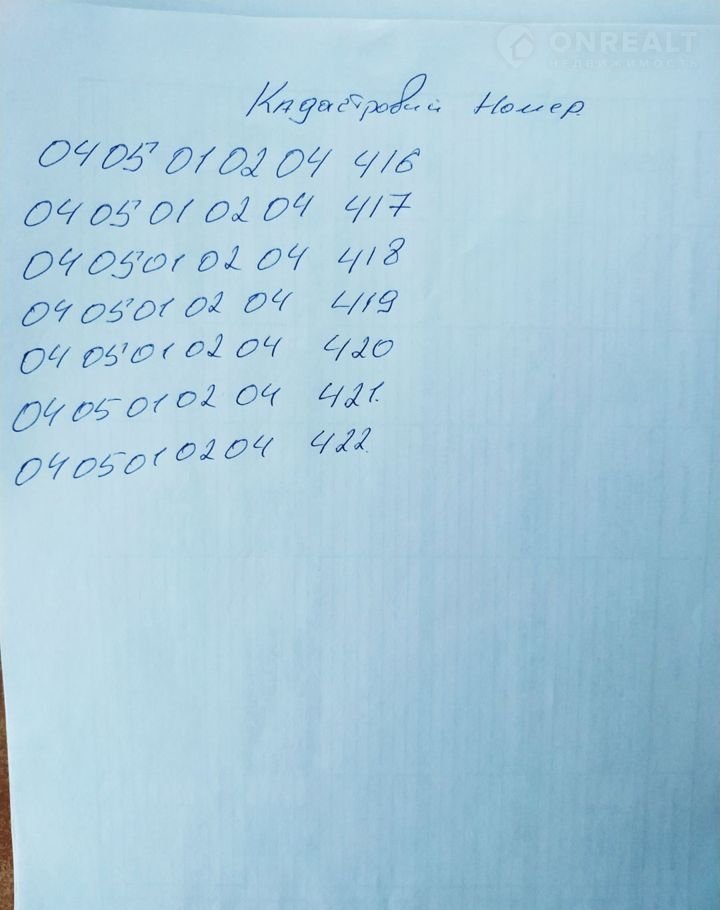 ONREALT
НЕДВИЖИМОСТЬ
Кадастровий Номер.
04 05 01 02 04 416
04 05 01 02 04 417
04 0501 02 04 418
04 0501 02 04 419
04 05 01 02 04 420
04 05 01 02 04 421.
04 0501 02 04 422.